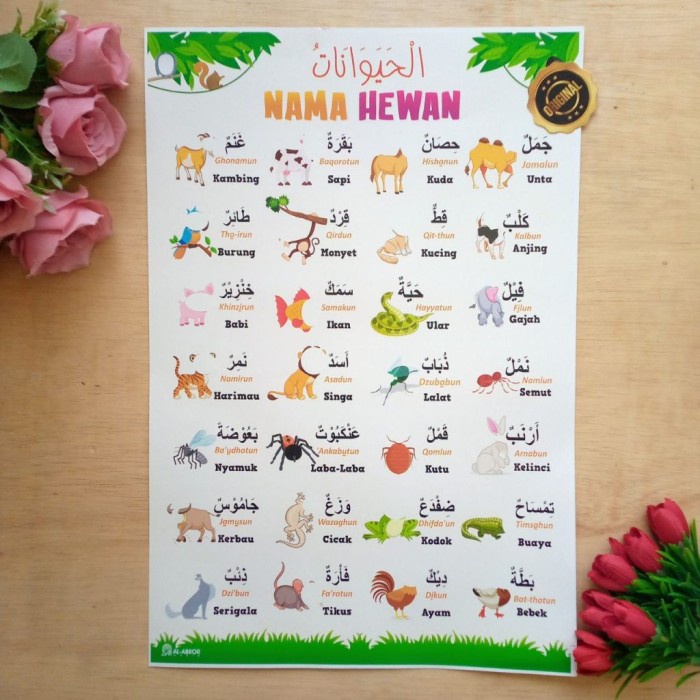 الْحَيَوَانَاتُ
NAMA HEWAN
ORIGINAL
غَنَمٌ
Ghonamun
Kambing
بَقَرَةٌ
Baqorotun
Sapi
حِصَانٌ
Hishanun
Kuda
جَمَلٌ
Jamalun
Unta
طَائِرٌ
Tha-irun
Burung
قِرْدٌ
Qirdun
Monyet
قِطٌّ
Qit-thun
Kucing
كَلْبٌ
Kalbun
Anjing
خِنْزِيْرٌ
Khinzirun
Babi
سَمَكٌ
Samakun
Ikan
حَيَّةٌ
Hayyatun
Ular
فِيْلٌ
Filun
Gajah
نَمِرٌ
Namirun
Harimau
أَسَدٌ
Asadun
Singa
ذُبَابٌ
Dzubabun
Lalat
نَمْلٌ
Namlun
Semut
بَعُوْضَةٌ
Ba'udhotun
Nyamuk
عَنْكَبُوْتٌ
'Ankabutun
Laba-Laba
قَمْلٌ
Qamlun
Kutu
أَرْنَبٌ
Arnabun
Kelinci
جَامُوْسٌ
Jamusun
Kerbau
وَزَغٌ
Wazaghun
Cicak
ضِفْدَعٌ
Dhifda'un
Kodok
تِمْسَاحٌ
Timsahun
Buaya
ذِئْبٌ
Dzi'bun
Serigala
فَأْرَةٌ
Fa'rotun
Tikus
دِيْكٌ
Dikun
Ayam
بَطَّةٌ
Bat-thotun
Bebek
AL-ABROR